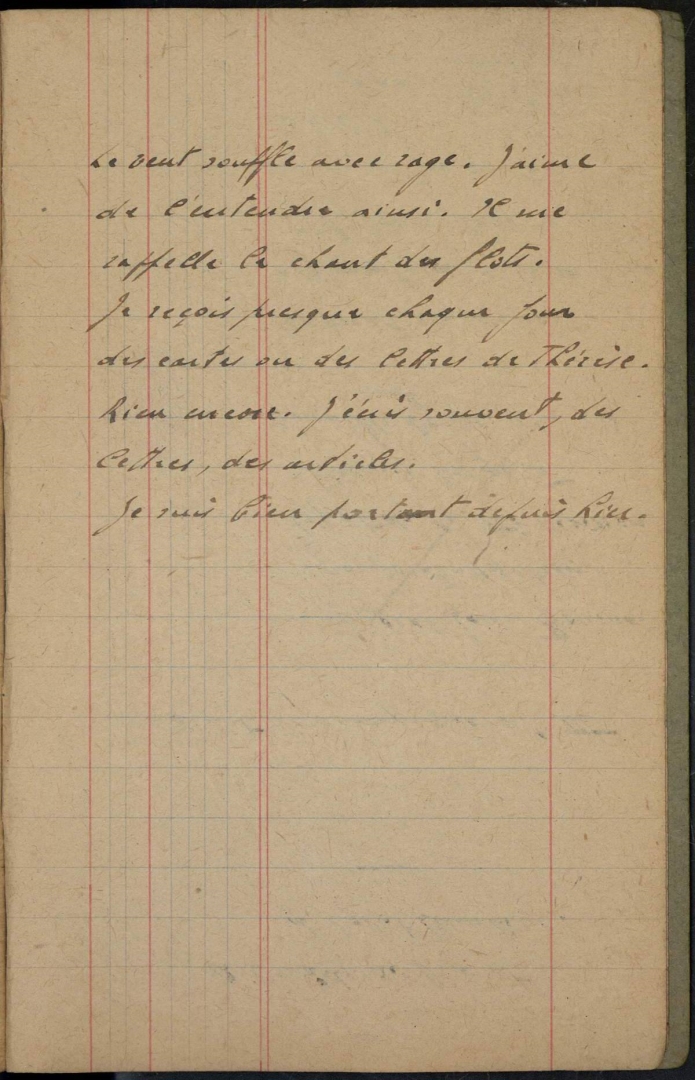 Le vent souffle avec rage. J'aime
de l'entendre ainsi. Il me
rappelle le chant des flots.
Je reçois presque chaque jour
des cartes ou des lettres de Thérèse.
Hier encore. J'écris souvent, des
lettres, des articles.
Je suis bien portant depuis hier.